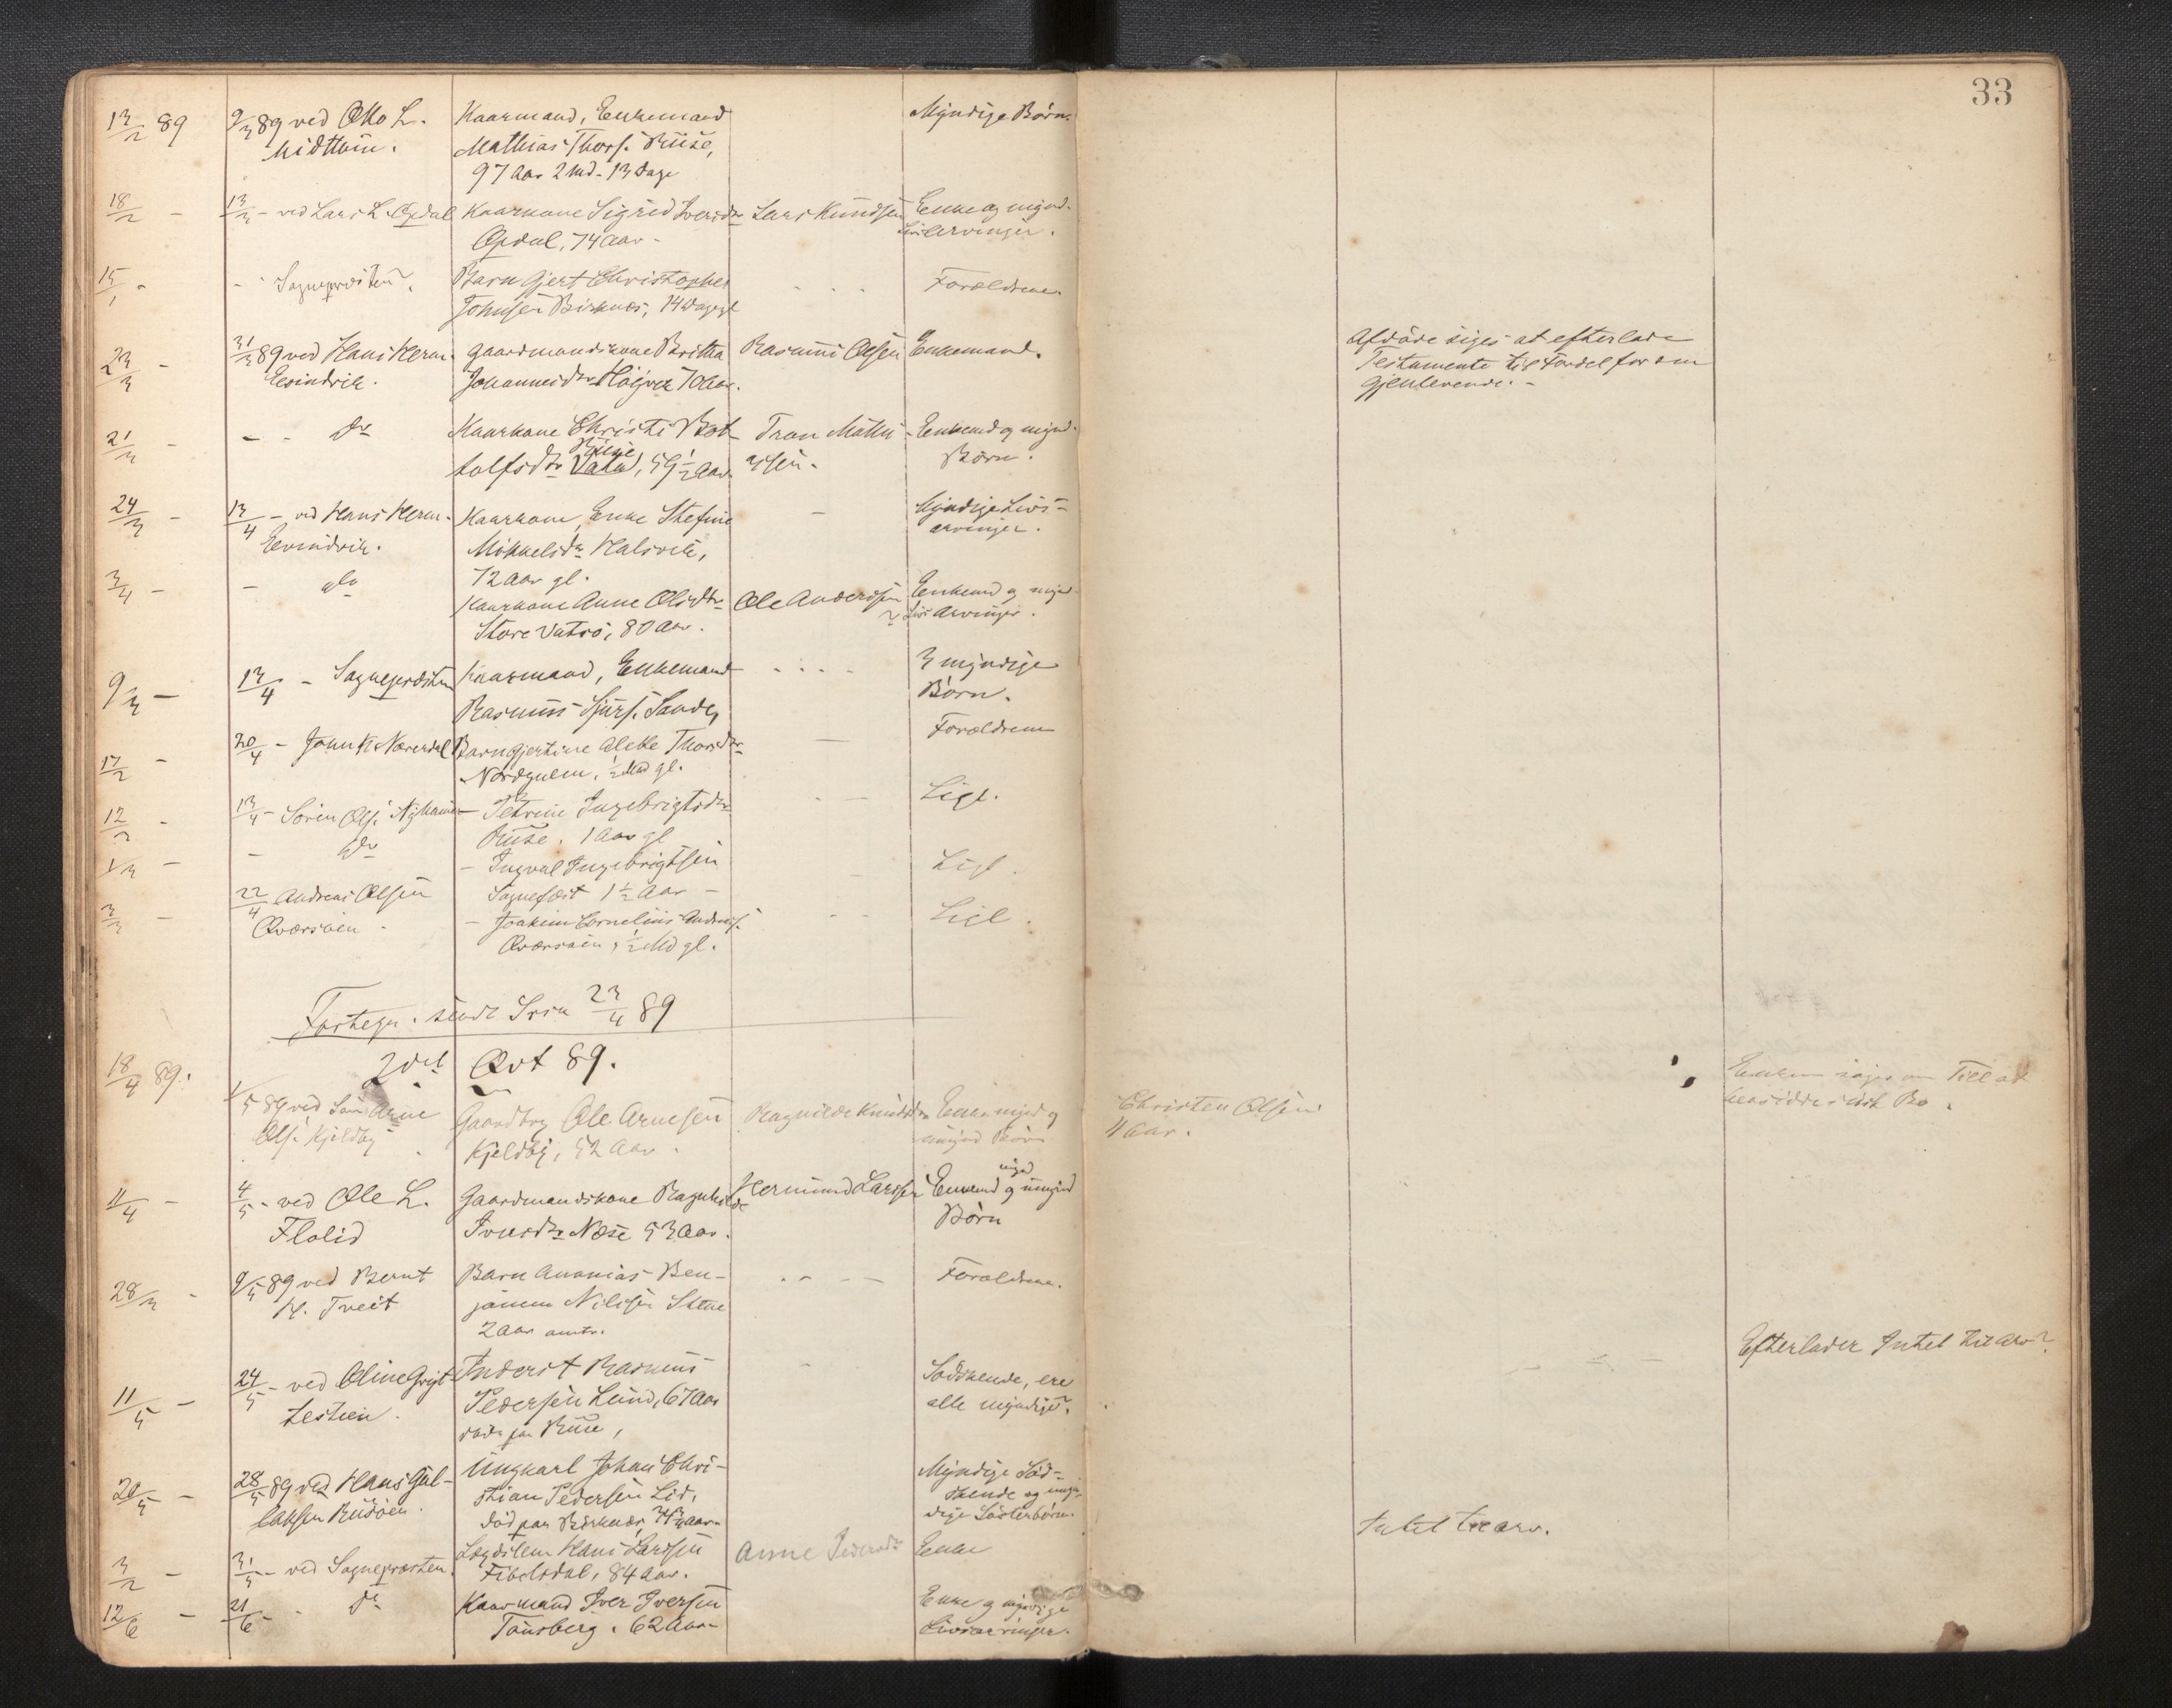 33
13/2 89
9/3 89 ved Otto L.
Midttuin.
Kaarmand, Enkemand
Mathias Thors. Riise,
97 Aar 2 Md. 13 Dage
Myndige Børn.
18/2 -
13/3 - ved Lars L. Opdal
Kaarkone Sigrid Iversdtr
Opdal, 74 Aar -
Lars Knudsen
Enke og mynd.
Livsarvinger.
15/1 -
- Sognepresten.
Barn Gjert Christopher
Johnsen Birknes, 14 Dage gl
Forældrene.
23/3 -
31/3 89 ved Hans Herm.
Eevindvik.
Gaardmandskone Britha
Johannesdtr Høyver 70 Aar.
Rasmus Olsen
Enkemand.
Afdøde siges at efterlade
Testamente til Fordel for den
gjenlevende. -
21/2 -
- - do
Kaarkone Christi Bot-
tolfsdtr Riise Vatn, 59 1/2 Aar.
Tron Mathi-
asen.
Enkemd og mynd.
Børn.
24/3 -
13/4 - ved Hans Herm.
Eevindvik.
Kaarkone, Enke Stefine
Mikkelsdtr Halsvik,
72 Aar gl.
-
Myndige Livs-
arvinger.
3/4 -
- do
Kaarkone Anne Olsdtr
Store Vatsø, 80 Aar.
Ole Andersen
Enkemd og mynd.
Livsarvinger.
9/3 -
13/4 - Sognepresten
Kaarmand, Enkemand
Rasmus Sjurs. Sande,
3 myndige
Børn.
17/2 -
20/4 - John N. Nærerdal
Barn Gjertine Alette Thorsdtr
Nordgulen, 1/2 Md gl.
-
Forældrene
12/2 -
13/4 - Søren Ols. Nyhamn
- Petrine Ingebrigtsdtr
Riise, 1 Aar gl
Ligl.
1/3 -
- do
- Ingval Ingebrigtsen
Sognefæst 1 1/2 Aar -
Ligl.
3/3 -
22/4 Andreas Olsen
Qværsøen.
- Joakim Cornelius Andreass.
Qværsøen, 1/2 Md gl.
Ligl.
Fortegn. sendt Srsn 23/4 89
2det Qvt 89.
18/4 89.
1/5 89 ved Arne
Ols. Kjeldby
Gaardbrg Ole Arnesen
Kjeldby, 52 Aar.
Ragnilde Knudsdtr
Enke mynd og
umynd Børn
Christen Olsen
11 Aar.
Enken siges om Till at
hensidde i uskt Bo.
11/4 -
4/5 - ved Ole L.
Flolid
Gaardmandskone Ragnhilde
Iversdtr Næse 53 Aar.
Hermund Larsen
Enkemd mynd og umynd
Børn
28/3 -
9/5 89 ved Bernt
H. Tveit
Barn Ananias Ben-
jamin Nilsen Stene
2 Aar omtr.
Forældrene.
11/5 -
24/5 - ved Oline Grigt
Inderst Rasmus
Pedersen Lund, 67 Aar
død paa Riise,
Sødskende, ere
alle myndige.
Efterlader Intet til arv.
20/5 -
28/5 89 ved Hans Gul-
laksen Risøen.
Ungkarl Johan Chri-
stian Pedersen Lid,
død paa Birknes, 34 3/4 Aar
Myndige Sød-
skende og myn-
dige Søsterbørn.
Intet til arv.
3/2 -
31/5 - ved Sognepresten.
Lægdslem Hans Larssen
Fibelsdal, 84 Aar.
Anne Pedersdtr
Enke
12/6 -
21/6 - do
Kaarmand Iver Iversen
Tønsberg. 62 Aar
Enke og myndige
Livsarvinger.